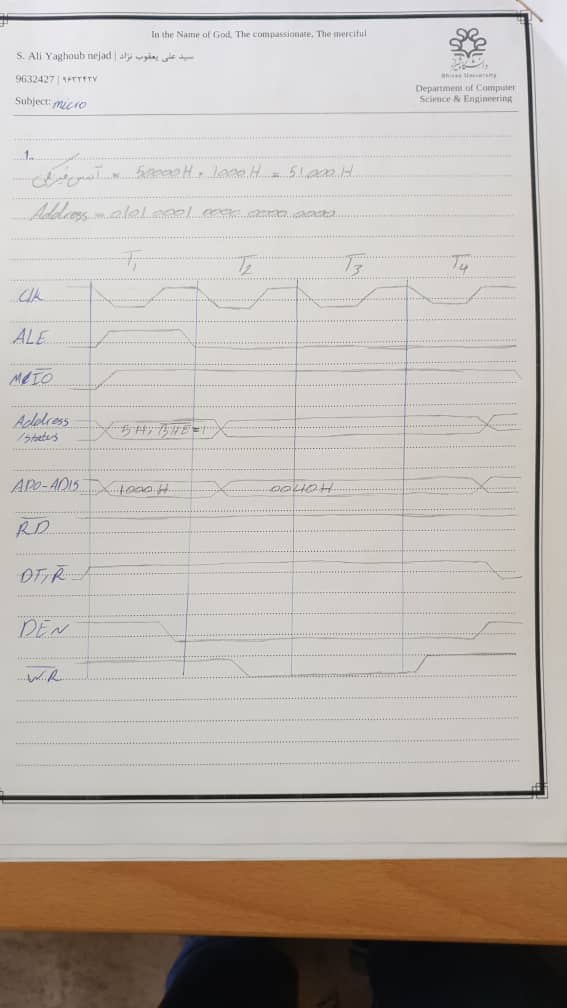 In the Name of God, The compassionate, The merciful
S. Ali Yaghoub nejad | سید علی یعقوب نژاد
9632427 | ۹۶۳۲۴۲۷
Subject: micro
دانشگاه شیراز
Shiraz University
Department of Computer
Science & Engineering
1.
آدرس فیزیکی = 50000H + 1000H = 51000H
Address = 0101 0001 0000 0000 0000
T1 T2 T3 T4
Clk
ALE
M/I̅O̅
Address
/status
5H, B̅H̅E̅=1
AD0-AD15
1000H
0040H
R̅D̅
DT/R̅
D̅E̅N̅
W̅R̅